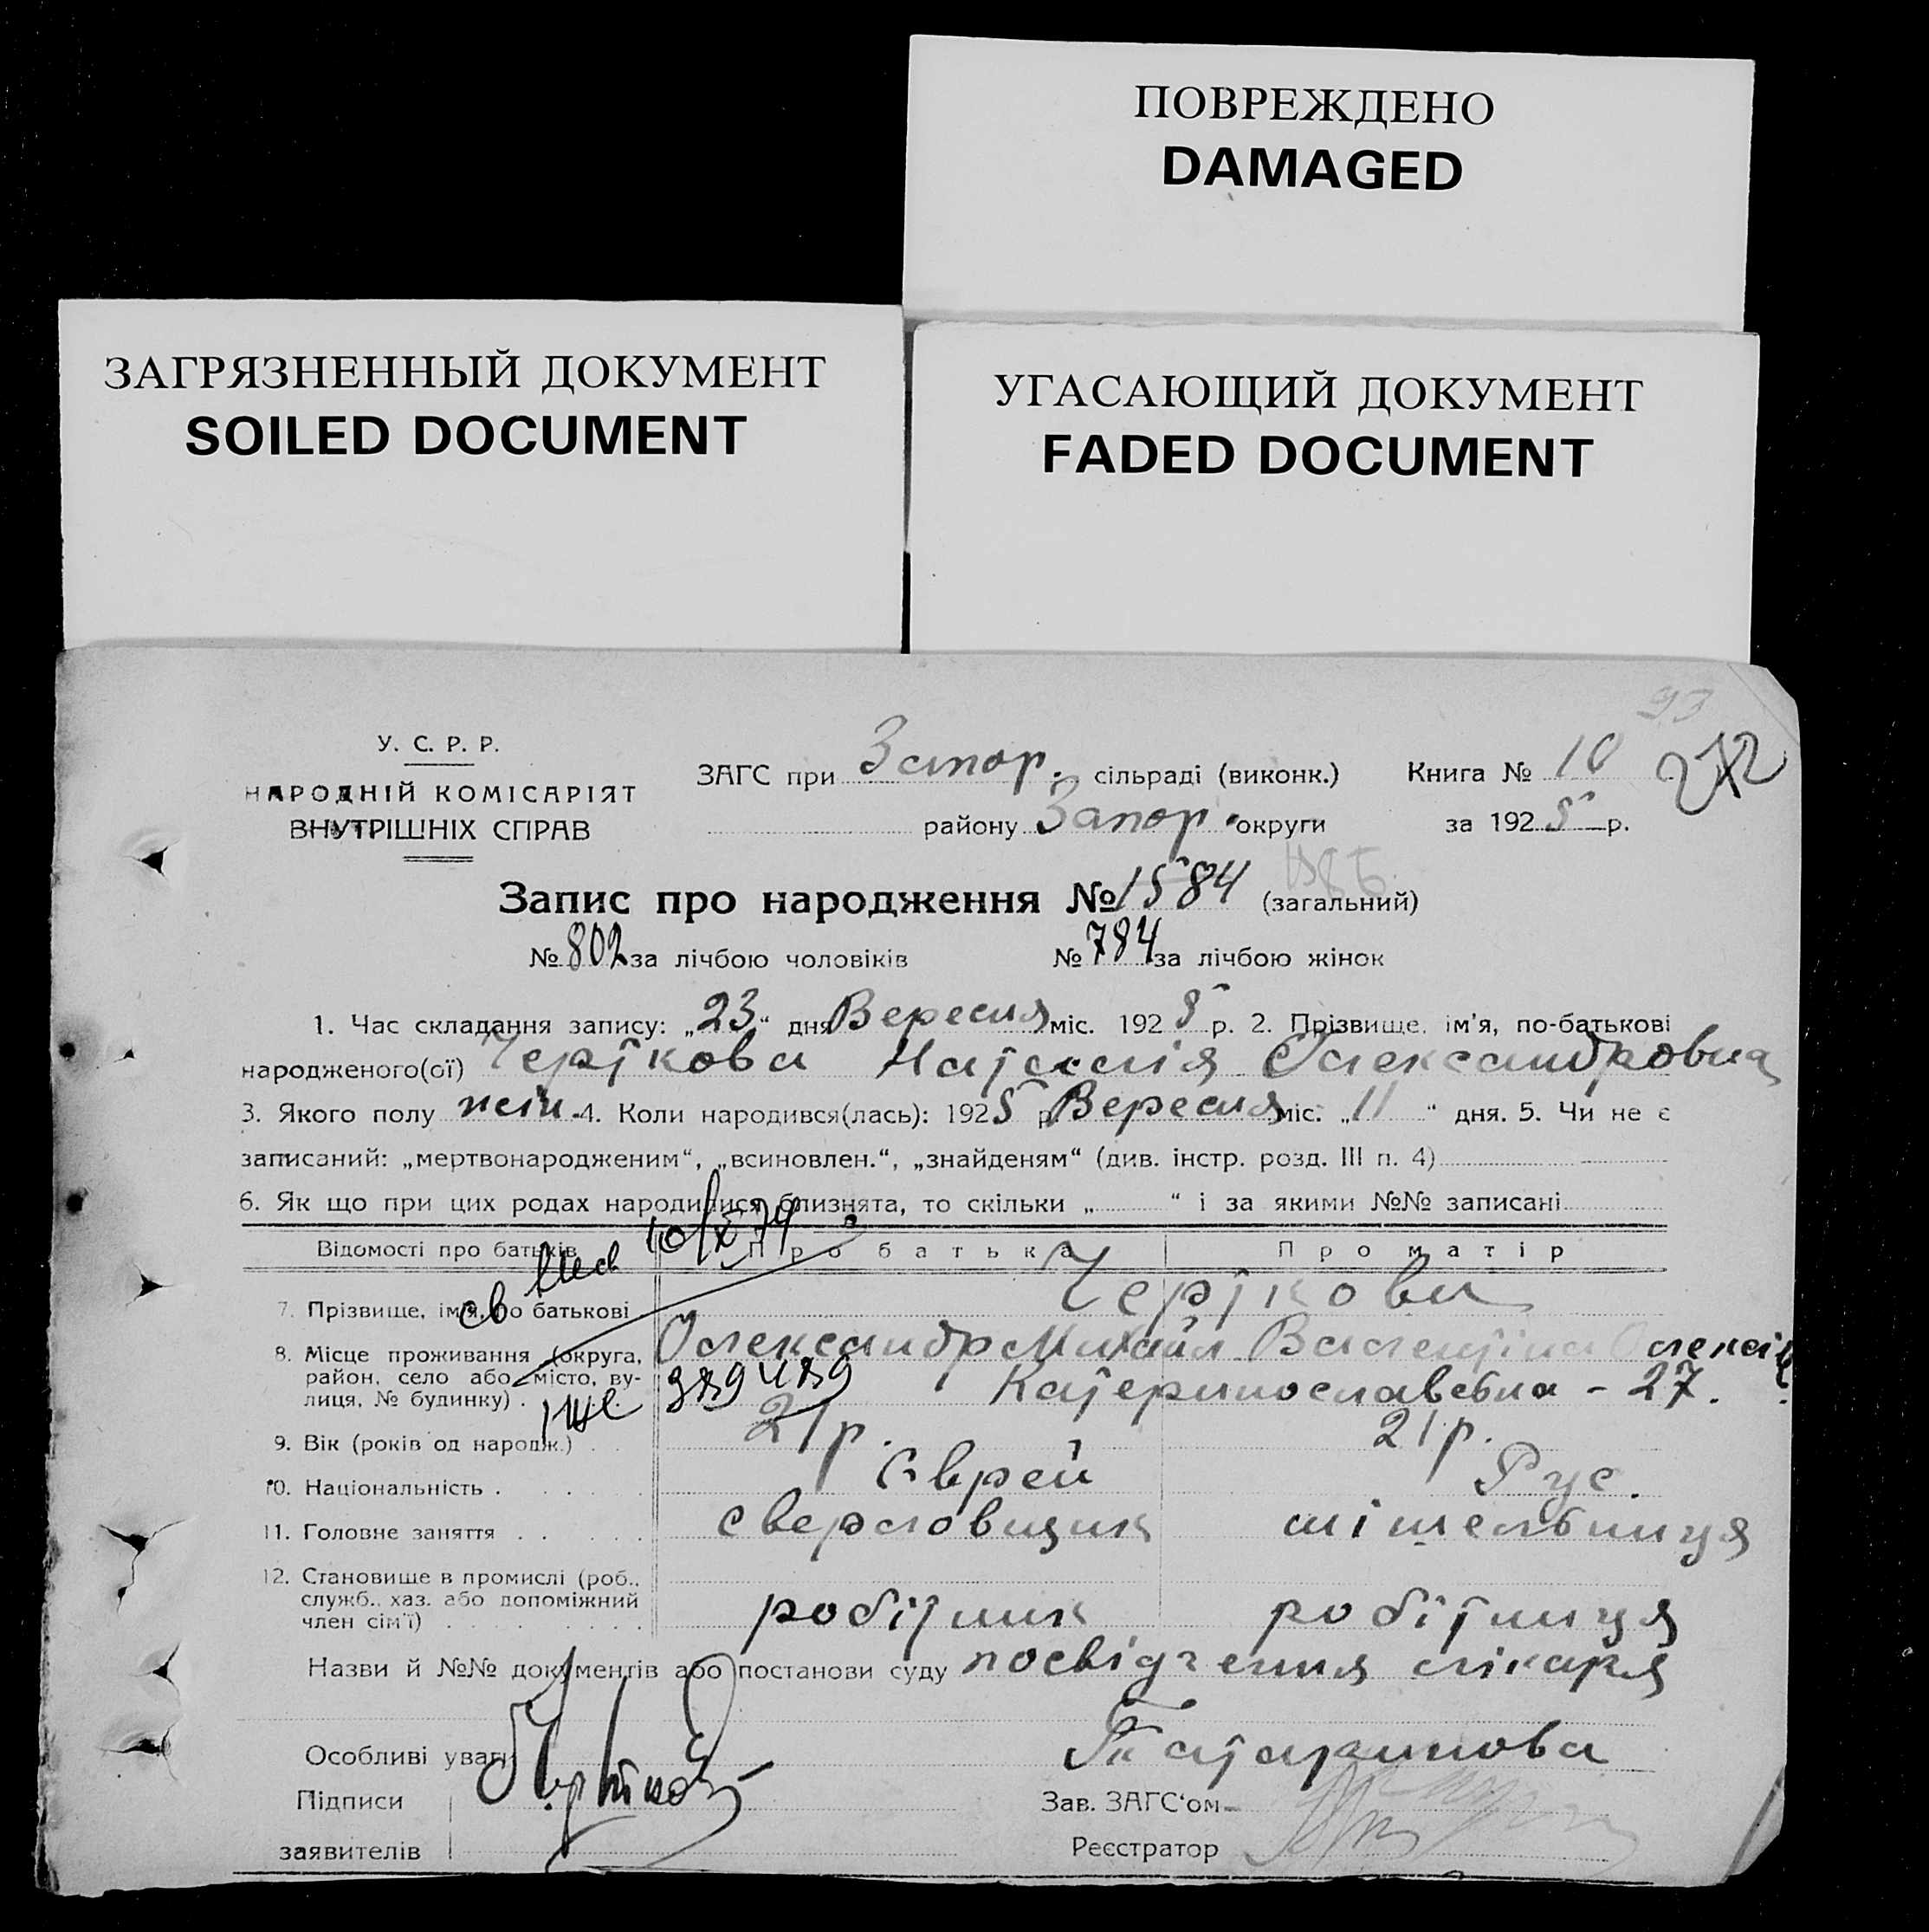 ПОВРЕЖДЕНО
DAMAGED
ЗАГРЯЗНЕННЫЙ ДОКУМЕНТ
SOILED DOCUMENT
УГАСАЮЩИЙ ДОКУМЕНТ
FADED DOCUMENT
93
272
У. С. Р. Р.
НАРОДНІЙ КОМІСАРІЯТ
ВНУТРІШНІХ СПРАВ
ЗАГС при Запор. сільраді (виконк.) Книга № 10
району Запор. округи за 1925 р.
Запис про народження № 1584 (загальний)
№ 802 за лічбою чоловіків № 784 за лічбою жінок
1. Час складання запису: „23“ дня Вересня міс. 1925 р. 2. Прізвище, ім’я, по-батькові
народженого(ої) Черткова Наталія Олександровна
3. Якого полу жін. 4. Коли народився(лась): 1925 р. Вересня міс. „11“ дня. 5. Чи не є
записаний: „мертвонародженим“, „всиновлен.“, „знайденям“ (див. інстр. розд. III п. 4)
6. Як що при цих родах народилися близнята, то скільки „ “ і за якими №№ записані
Відомості про батьків Про батька Про матір
7. Прізвище, ім’я, по батькові Черткови
Олександр Михайл Валентіна Олексій
8. Місце проживання (округа, район, село або місто, вулиця, № будинку) Катеринославська - 27.
9. Вік (років од народж.) 21 р. 21 р.
10. Національність Єврей Рус.
11. Головне заняття сверловщик
12. Становище в промислі (роб., служб., хаз. або допоміжний член сім’ї) робітник робітниця
Назви й №№ документів або постанови суду посвідчення лікаря
Особливі уваги Татаринова
Підписи Зав. ЗАГС‘ом
заявителів Реєстратор